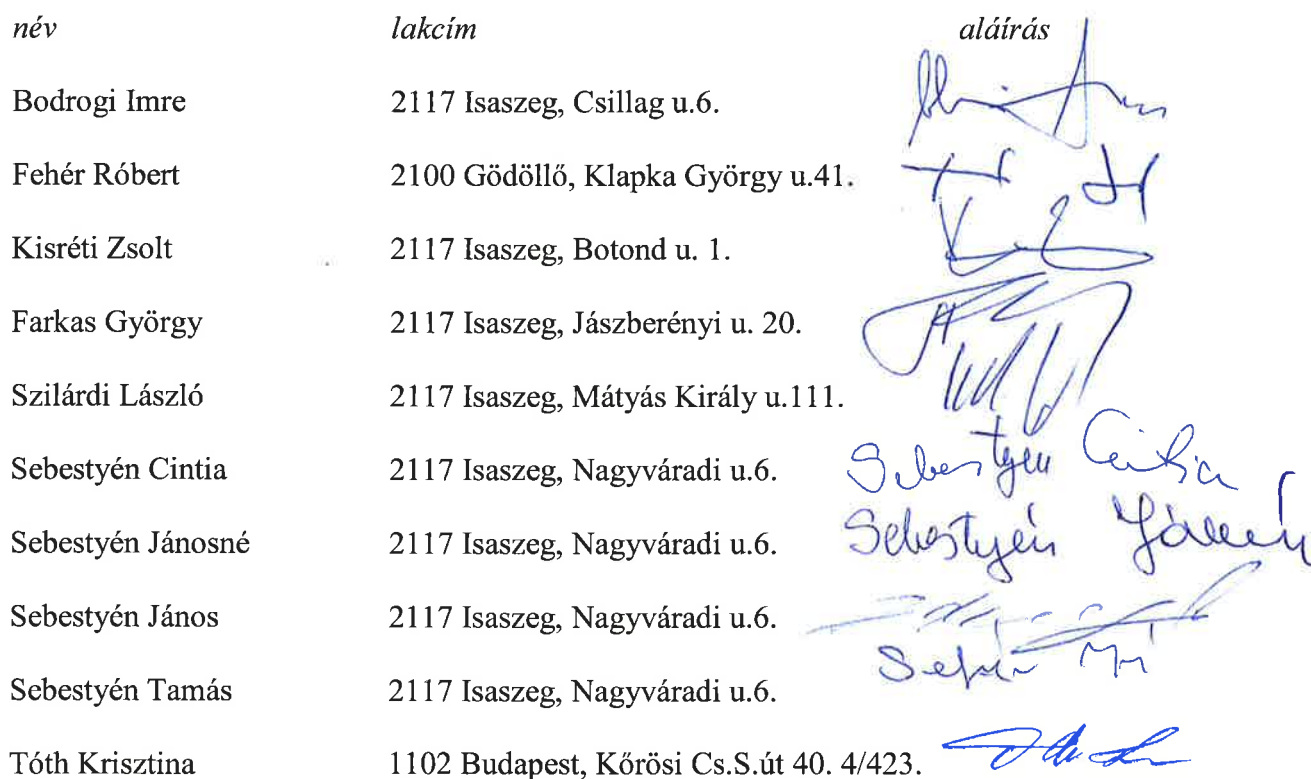 név lakcím aláírás
Bodrogi Imre 2117 Isaszeg, Csillag u.6.
Fehér Róbert 2100 Gödöllő, Klapka György u.41.
Kisréti Zsolt 2117 Isaszeg, Botond u. 1.
Farkas György 2117 Isaszeg, Jászberényi u. 20.
Szilárdi László 2117 Isaszeg, Mátyás Király u.111.
Sebestyén Cintia 2117 Isaszeg, Nagyváradi u.6. Sebestyén Cintia
Sebestyén Jánosné 2117 Isaszeg, Nagyváradi u.6. Sebestyén
Sebestyén János 2117 Isaszeg, Nagyváradi u.6.
Sebestyén Tamás 2117 Isaszeg, Nagyváradi u.6.
Tóth Krisztina 1102 Budapest, Kőrösi Cs.S.út 40. 4/423.